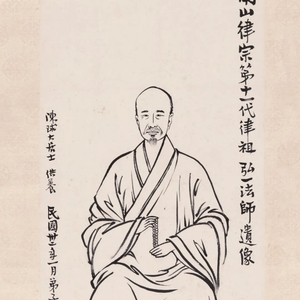 南山律宗第十一代律祖 弘一法師 遺像
陳
大居士 供養
民國卅
年一月弟子